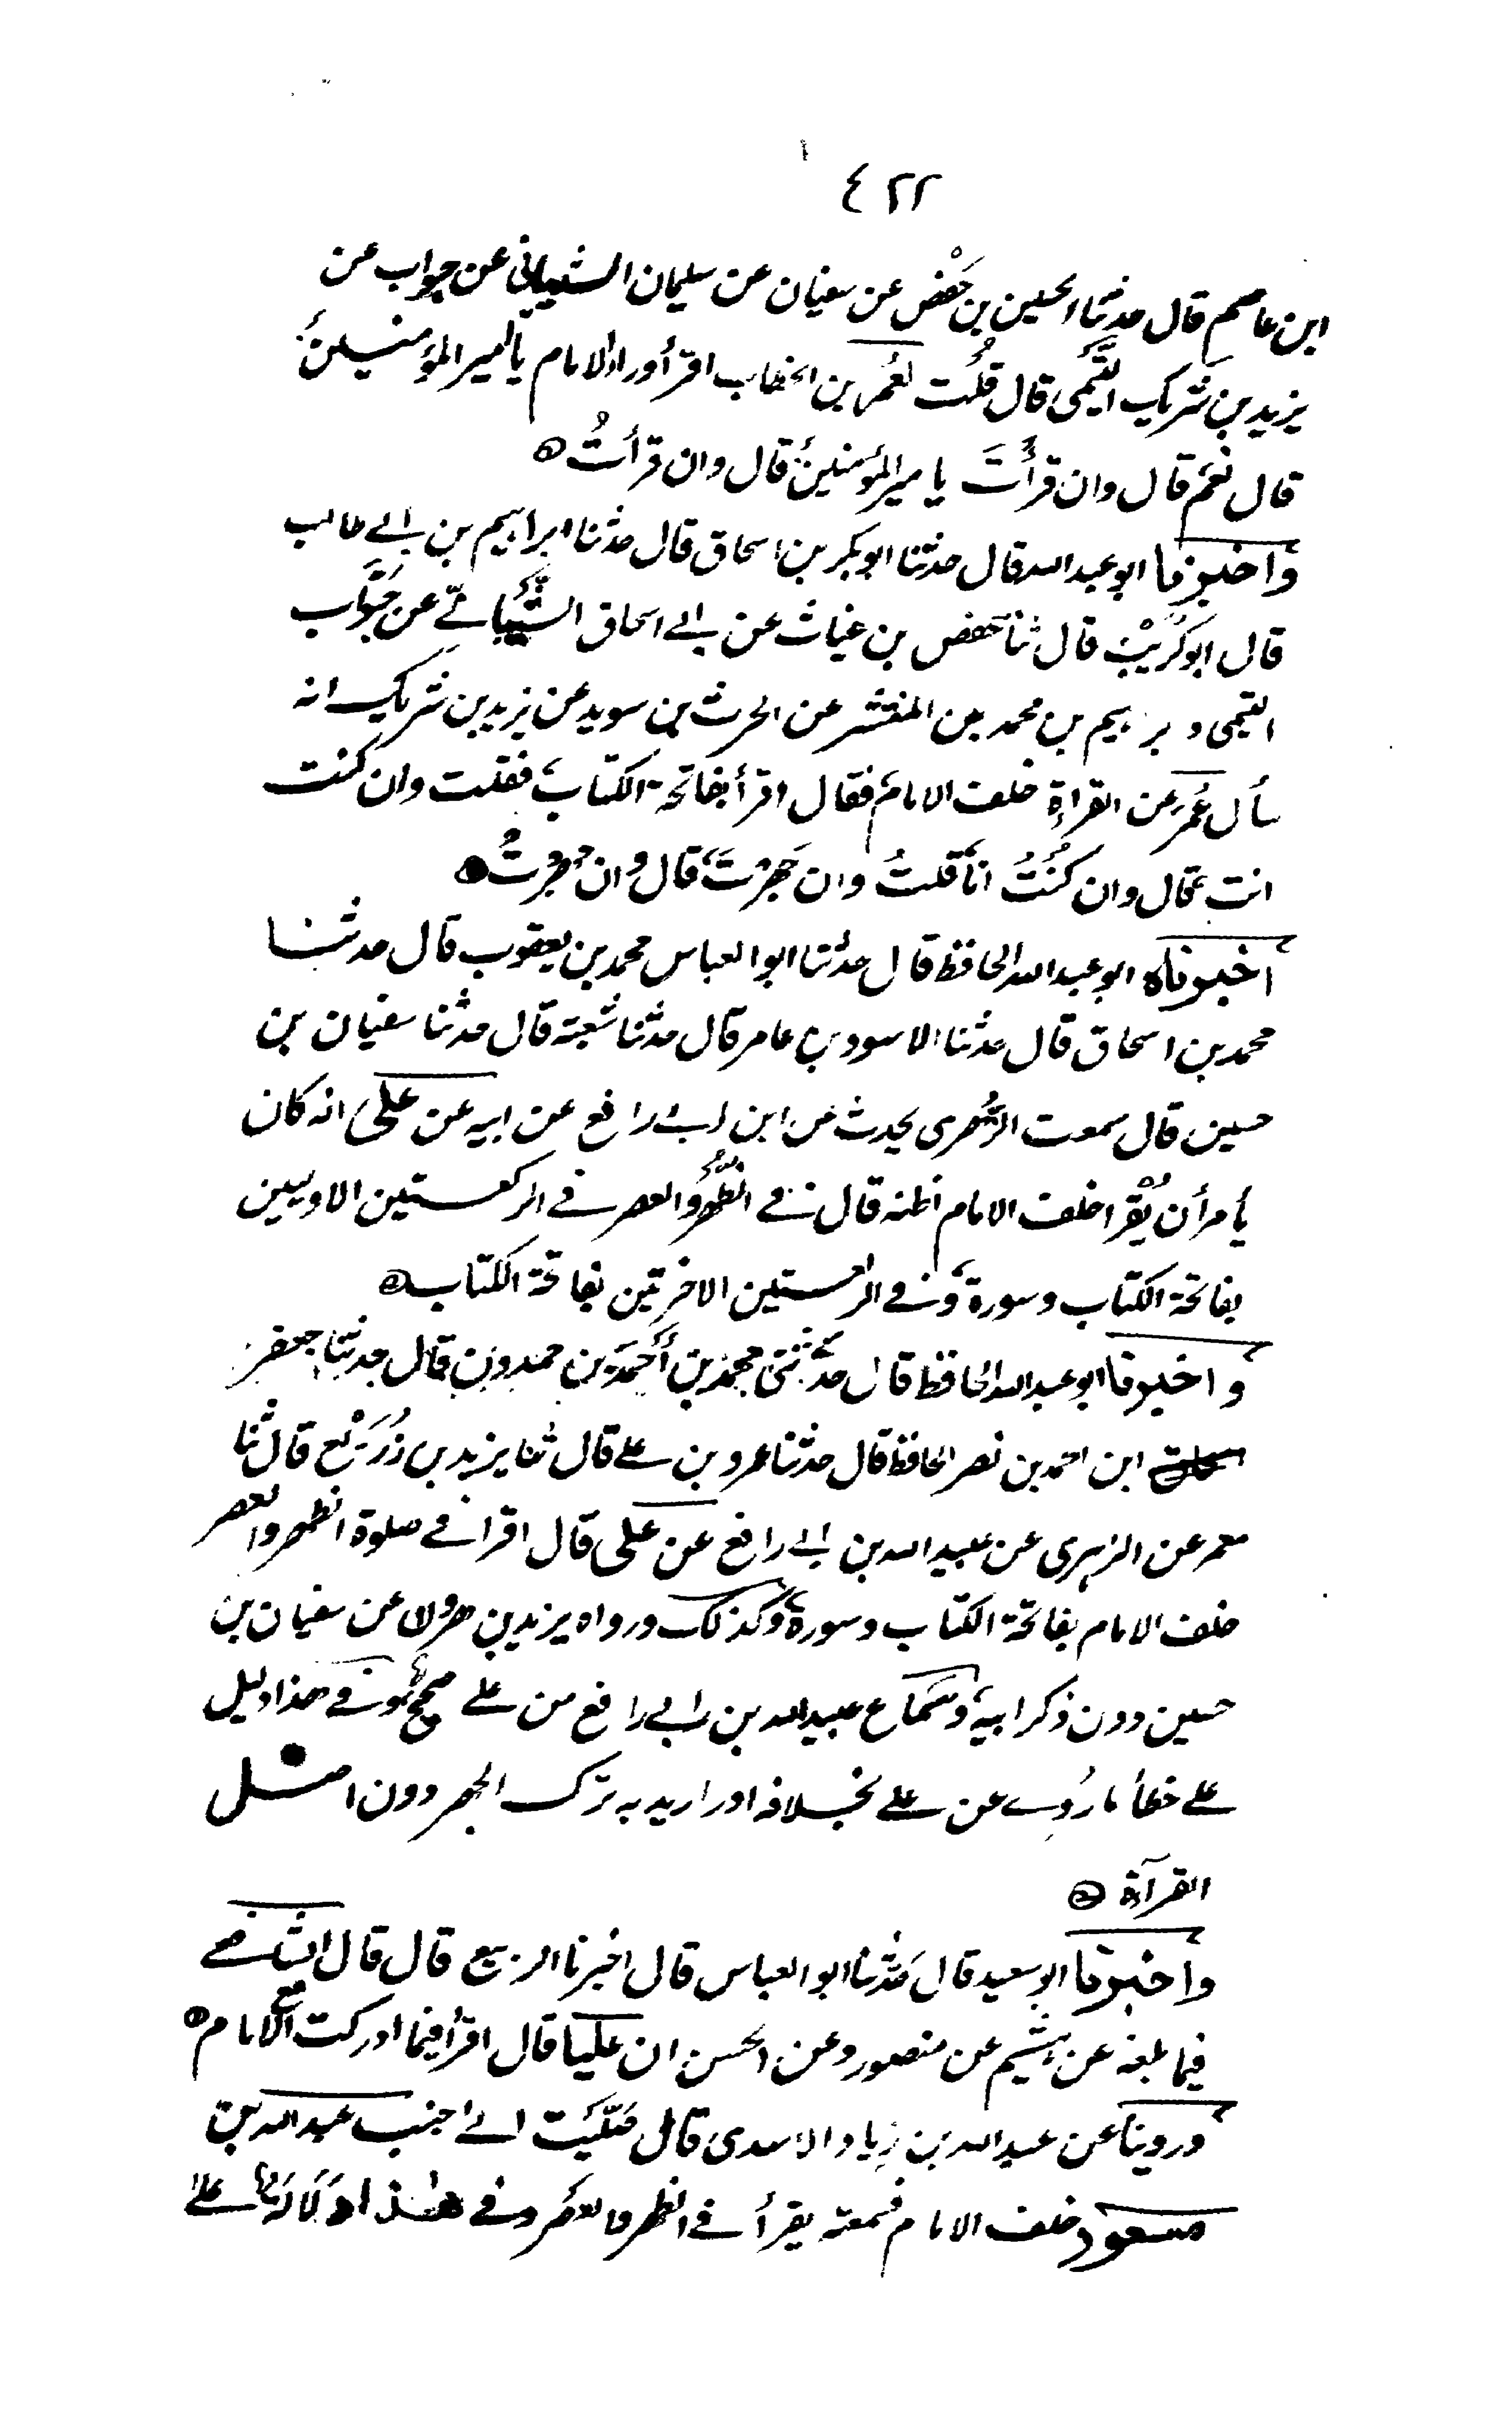 ٤٢٢
ابن عاصم قال حدثنا الحسين بن حَفْص عن سفيان عن سليمان الشيباني عن جواب عن
يزيد بن شريك التَّيمى قال قلُت لعُمر بن الخطاب اقرأ وراء الامام يا امير المؤمنين
قال نعَم قال وان قرأْتَ يا امير المؤمنين قال وان قرأتُ
وَاخبرنا ابو عبد الله قال حدثنا ابو بكر بن اسحاق قال حدثنا ابراهيم بن ابى طالب
قال ابو كُرَيْب قال ثنا حَفص بن غياث عن ابى اسحاق الشَّيبانى عن جَوَّاب
التيمى و برهيم بن محمد بن المنتشر عن الحرث بن سويد عن يزيد بن شريك انه
سأل عُمَر عن القراءة خلف الامام فقال اقرأ بفاتحة الكتاب فقلت وان كنت
انت قال وان كُنْتُ انا قلتُ وان جَهَرْتَ قال وان جهرتُ
اَخبرناه ابو عبد الله الحافظ قال حدثنا ابو العباس محمد بن يعقوب قال حدثنا
محمد بن اسحاق قال حدثنا الاسود بن عامر قال حدثنا شعبة قال حدثنا سفيان بن
حسين قال سمعت الزُّهرى يحدث عن ابن ابى رافع عن ابيه عن على انه كان
يأمر أن يُقْرا خلف الامام اظنه قال فى الظُّهر والعصر فى الركعتين الاوليين
بفاتحة الكتاب وسورة وفى الركعتين الاخرتين بفاتحة الكتاب
وَاخبرنا ابو عبد الله الحافظ قال حَدَّثنى محمد بن أَحْمَد بن حمدون قال حدثنا جعفر
ابن احمد بن نصر الحافظ قال حدثنا عمرو بن على قال ثنا يزيد بن زُرَيْع قال ثنا
معمر عن الزهرى عن عبيد الله بن ابى رافع عن على قال اقرا فى صلوة الظهر والعصر
خلف الامام بفاتحة الكتاب وسورة وكذلك ورواه يزيد بن هرون عن سفيان بن
حسين دون ذكر ابيه وسَماع عبيد الله بن ابى رافع من على صحيح وفى هذا دليل
على خطأ ما رُوى عن على بخلافه او اريد به ترك الجهر دون اصل
القرآة
وَاخبرنا ابو سعيد قال حَدثنا ابو العباس قال اخبرنا الربيع قال قال الشافعى
فيما بلغه عن هُشيم عن منصور وعن الحسن ان عليا قال اقرأ فيما ادركت مع الامام
وَروينا عن عبد الله بن زياد الاسدى قال صَلَّيْت الى جنب عبد الله بن
مسعود خلف الامام فسمعته يقرأ فى الظهر والعصر وفى هذا دلالة على